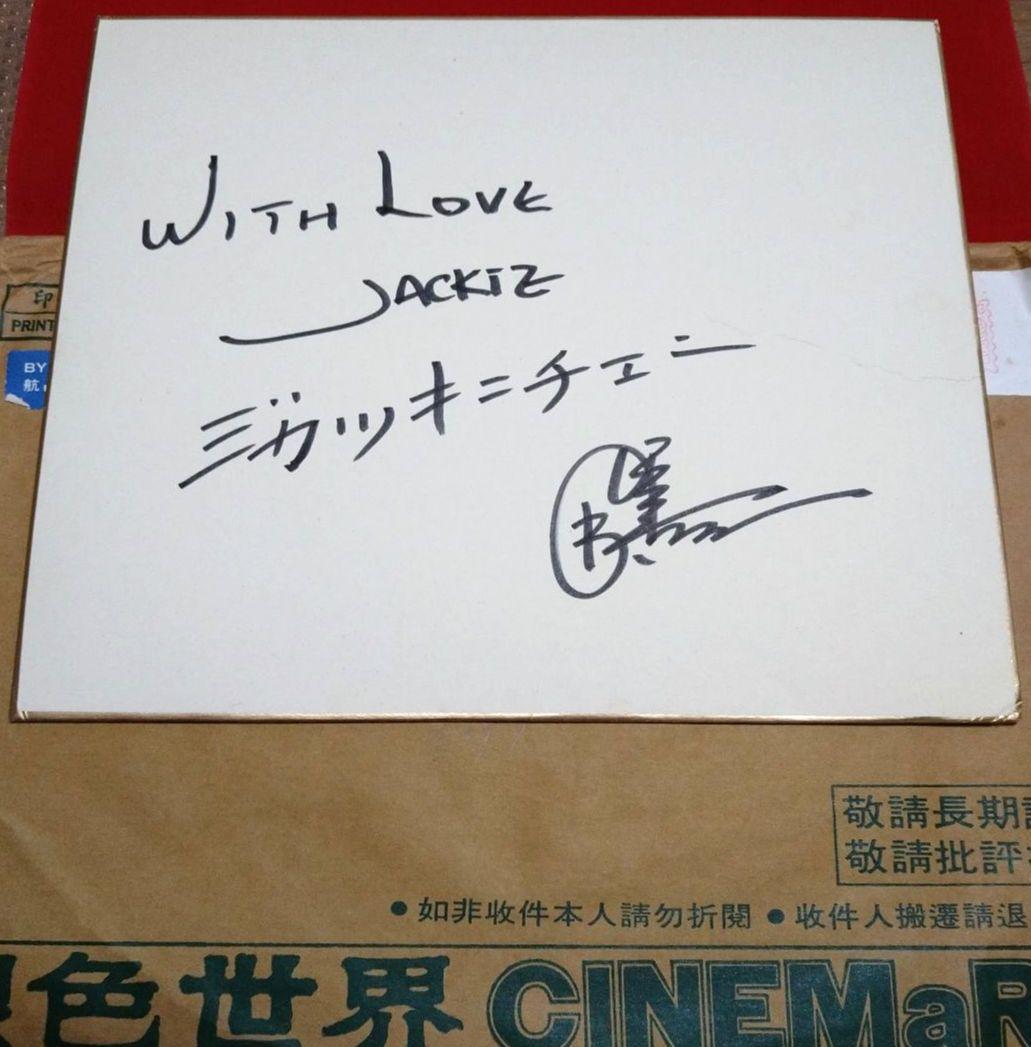 WITH LOVE
JACKIE
ジャッキーチェン
印
PRINT
BY
航
敬請長期
敬請批評
●如非收件本人請勿折閱 ●收件人搬遷請退
色世界 CINEMaR